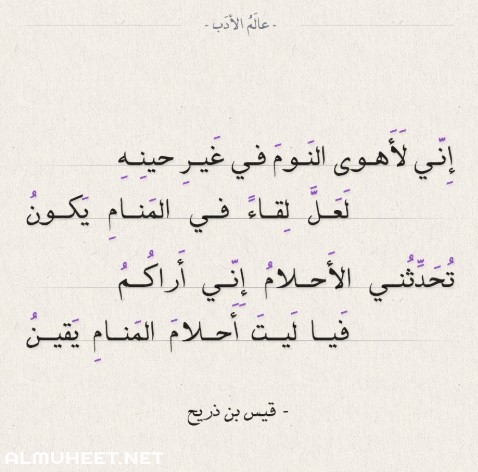 - عالَمُ الأدَب -
إِنّي لَأَهوى النَومَ في غَيرِ حينِهِ
لَعَلَّ لِقاءً في المَنامِ يَكونُ
تُحَدِّثُني الأَحلامُ إِنّي أَراكُمُ
فَيا لَيتَ أَحلامَ المَنامِ يَقينُ
- قيس بن ذريح
ALMUHEET.NET